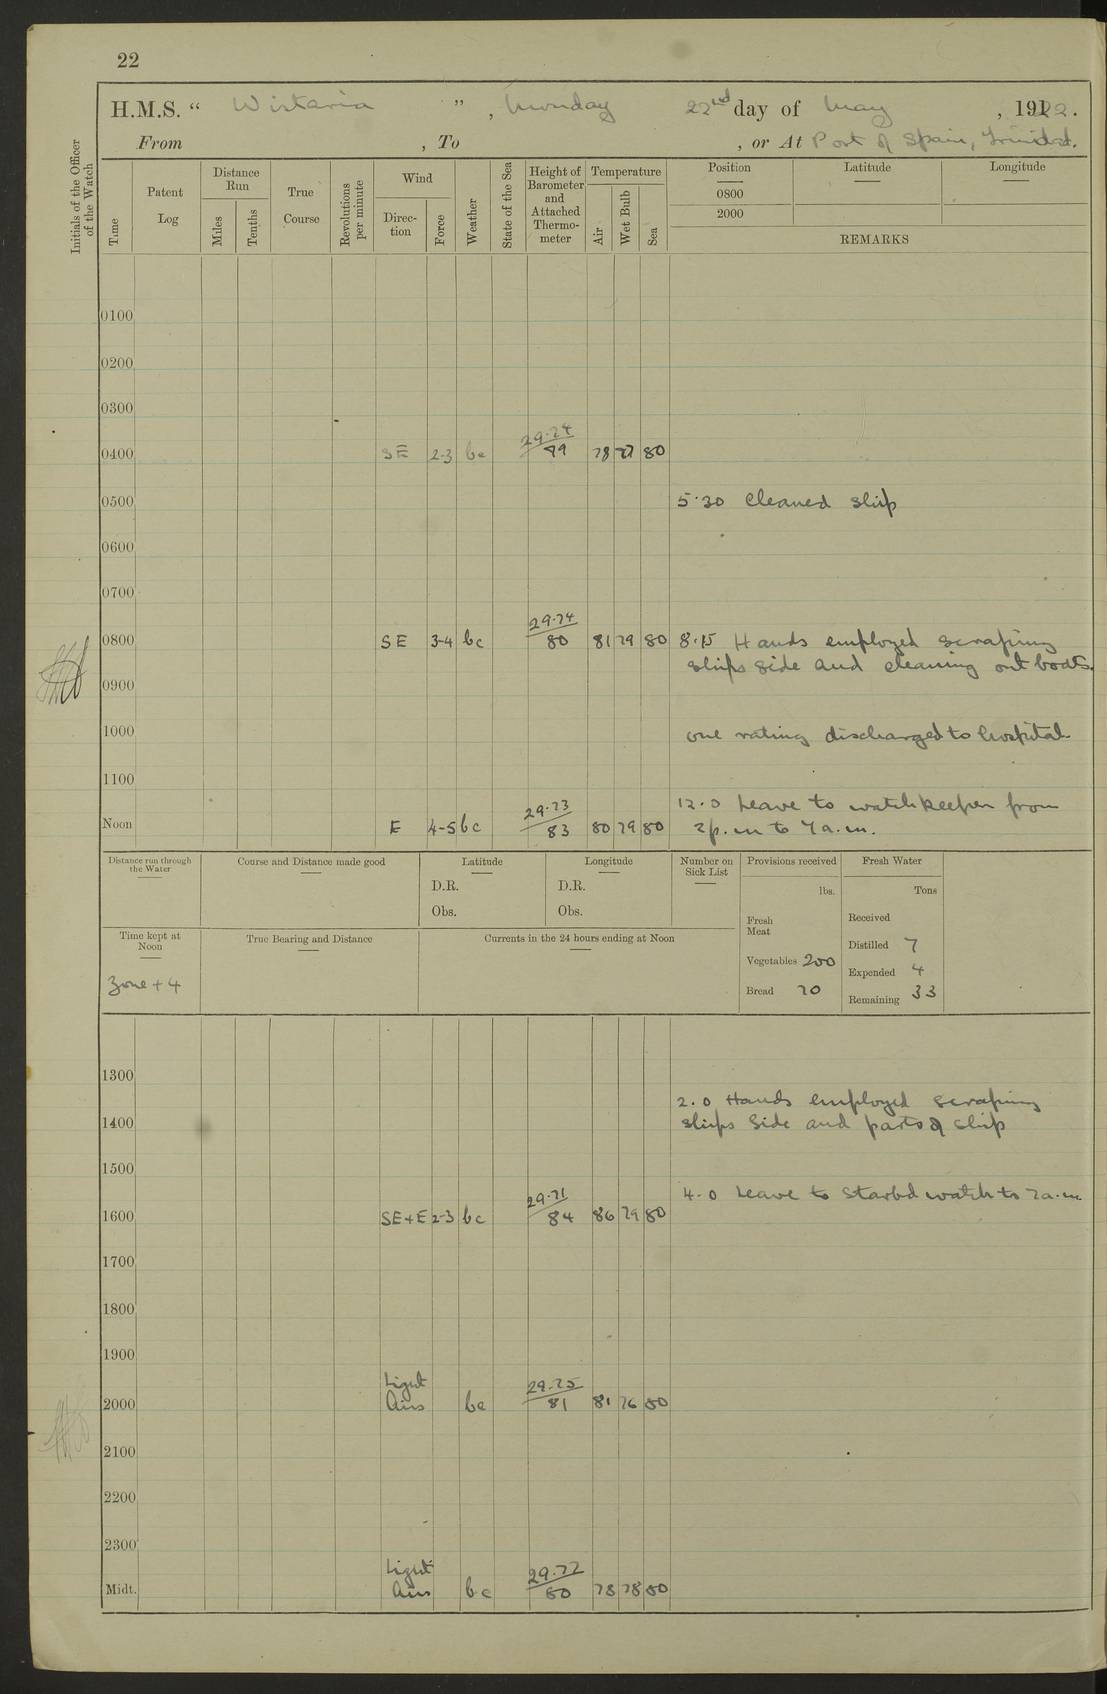 22
H.M.S. “ Wistaria ”, Monday 22nd day of May, 1922.
From , To , or At Port of Spain, Trinidad.
Initials of the Officer of the Watch
Time
Patent Log
Distance Run
Miles
Tenths
True Course
Revolutions per minute
Wind
Direc-tion
Force
Weather
State of the Sea
Height of Barometer and Attached Thermo-meter
Temperature
Air
Wet Bulb
Sea
Position
0800
2000
Latitude
Longitude
REMARKS
0100
0200
0300
0400 SE 2-3 bc 29.74 79 78 77 80
0500 5.30 Cleaned ship
0600
0700
0800 SE 3-4 bc 29.74 80 81 79 80 8.15 Hands employed scraping
ships side and cleaning out boats.
0900
1000 one rating discharged to hospital
1100
12.0 Leave to watchkeeper from
Noon E 4-5 bc 29.73 83 80 79 80 2p.m to 7a.m.
Distance run through the Water
Course and Distance made good
Latitude
D.R.
Obs.
Longitude
D.R.
Obs.
Number on Sick List
Provisions received
lbs.
Fresh Meat
Vegetables 200
Bread 70
Fresh Water
Tons
Received
Distilled 7
Expended 4
Remaining 33
Time kept at Noon
Zone + 4
True Bearing and Distance
Currents in the 24 hours ending at Noon
1300
2.0 Hands employed scraping
1400 ships side and parts of ship
1500
4.0 Leave to Starbd watch to 7a.m
1600 SE+E 2-3 bc 29.71 84 86 79 80
1700
1800
1900
2000 Light Airs bc 29.75 81 81 76 80
2100
2200
2300
Midt. Light Airs bc 29.72 80 78 78 80